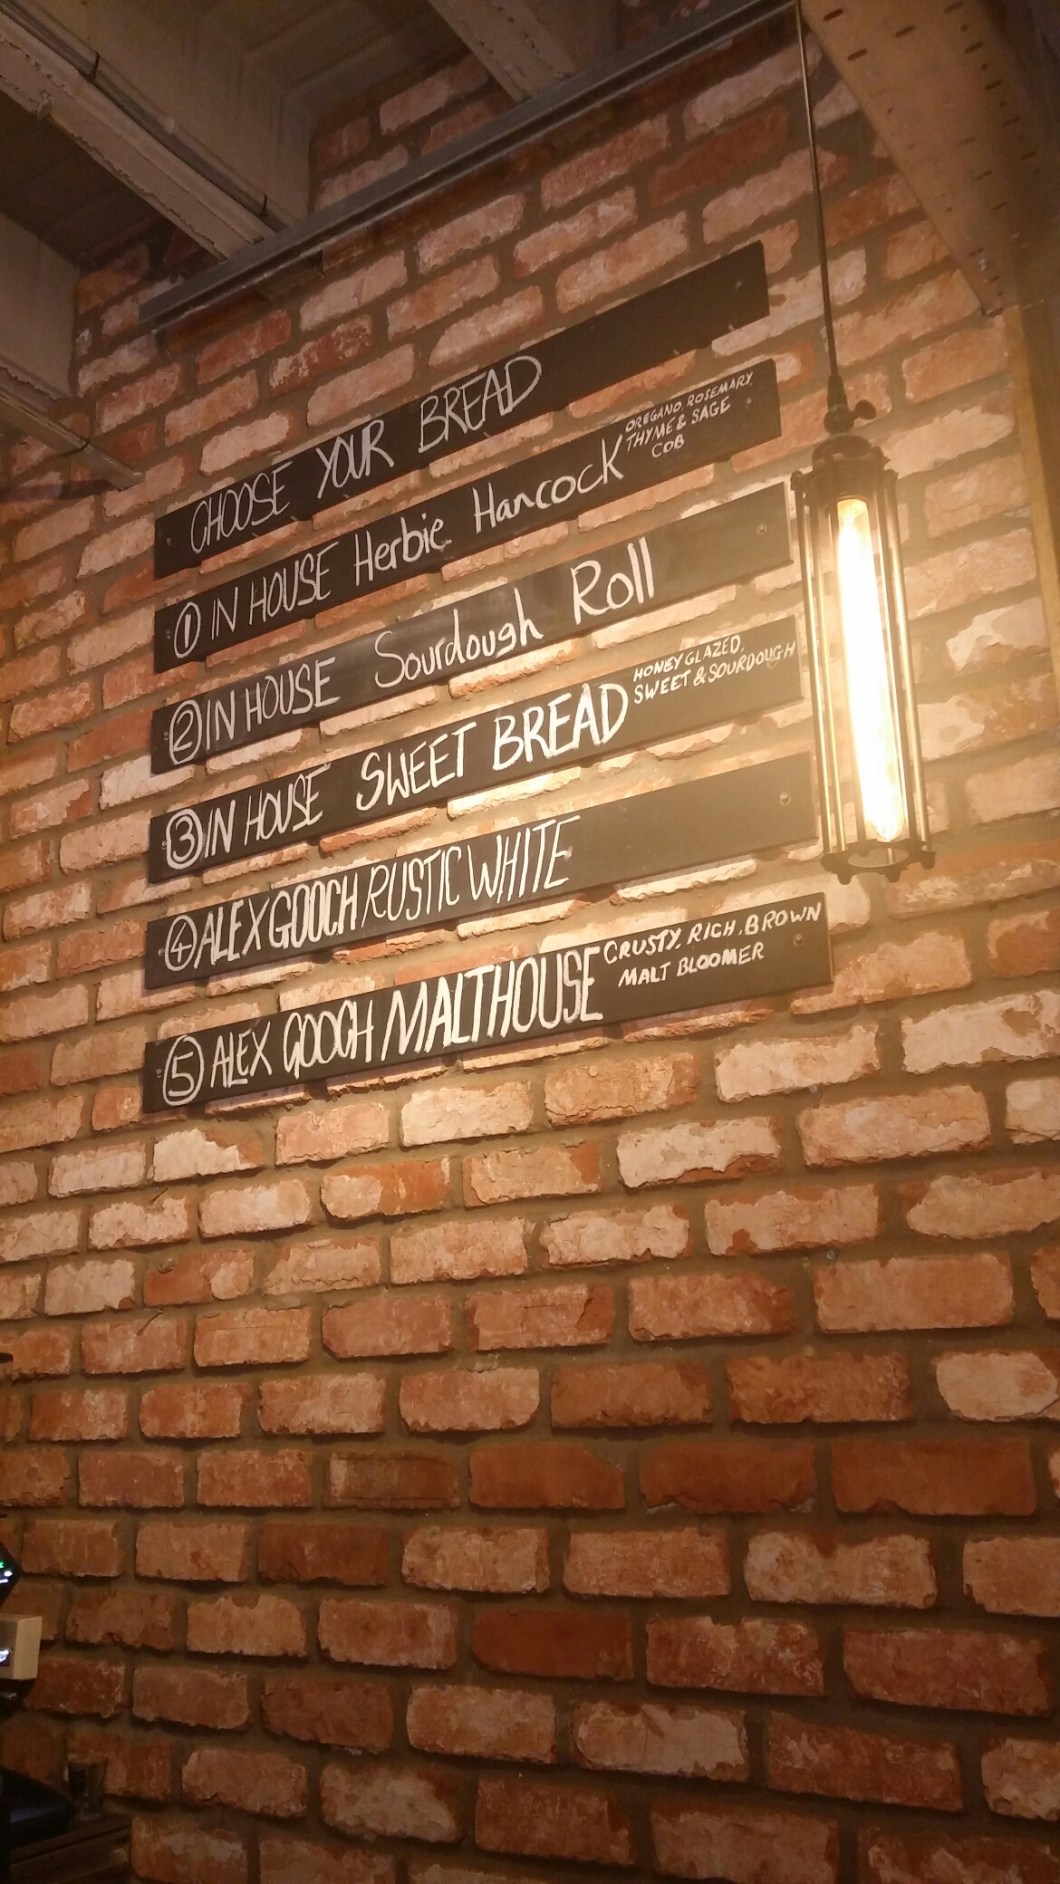 CHOOSE YOUR BREAD
① IN HOUSE Herbie Hancock OREGANO, ROSEMARY,
THYME & SAGE
COB
② IN HOUSE Sourdough Roll
③ IN HOUSE SWEET BREAD HONEY GLAZED,
SWEET & SOURDOUGH
④ ALEX GOOCH RUSTIC WHITE
⑤ ALEX GOOCH MALTHOUSE CRUSTY, RICH, BROWN
MALT BLOOMER